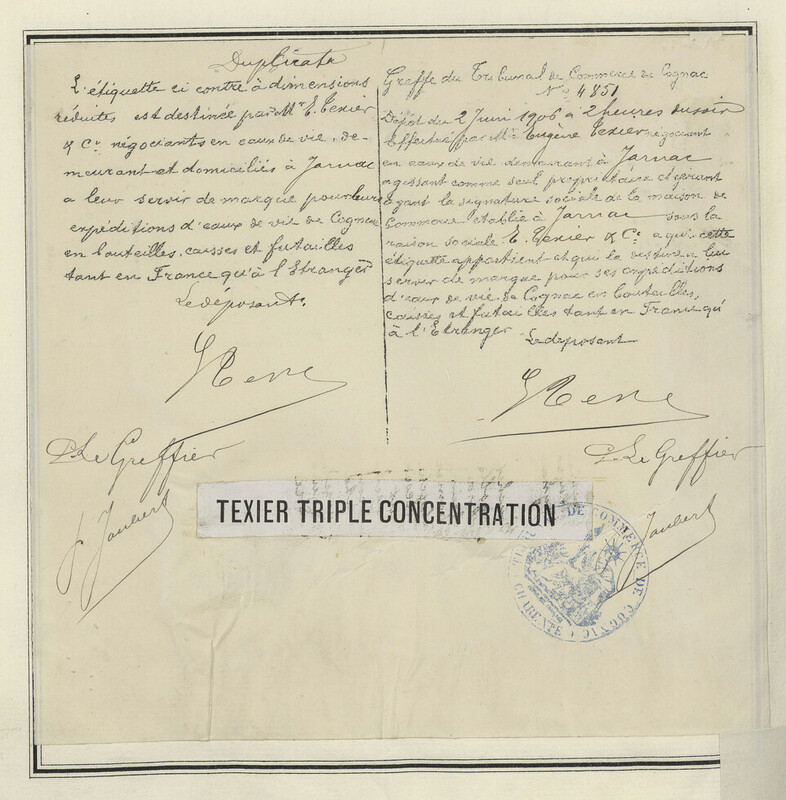 Duplicata
L'étiquette ci contre à dimensions
réduites est destinée par Mr E. Texier
& Cie négociants en eaux de vie, de-
meurant et domiciliés à Jarnac
a leur servir de marque pour leurs
expéditions d'eaux de vie de Cognac
en bouteilles, caisses et futailles
tant en France qu'à l'Etranger
Le déposant.
Le Greffier
Joubert
Greffe du Tribunal de Commerce de Cognac
No 4851
Dépot du 2 Juin 1906 à 2 heures du soir
Effectué par Mr Eugène Texier négociant
en eaux de vie demeurant à Jarnac
agissant comme seul propriétaire et gérant
ayant la signature sociale de la maison de
Commerce établie à Jarnac sous la
raison sociale E. Texier & Cie a qui cette
étiquette appartient et qui la destine à leur
servir de marque pour ses expéditions
d'eaux de vie de Cognac en bouteilles,
caisses et futailles tant en France qu'
à l'Etranger
Le déposant
Le Greffier
Joubert
TEXIER TRIPLE CONCENTRATION
DE COMMERCE DE COGNAC
CHARENTE